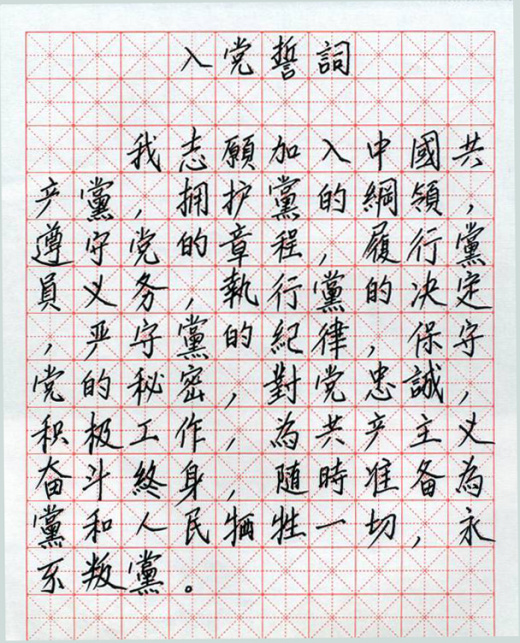 入党誓詞
我志願加入中國共
产黨,拥护黨的綱領,
遵守党的章程,履行黨
員义务,執行黨的决定
,严守黨的紀律,保守
党的秘密,對党忠誠,
积极工作,為共产主义
奋斗終身,随時准备為
黨和人民牺牲一切,永
不叛黨。